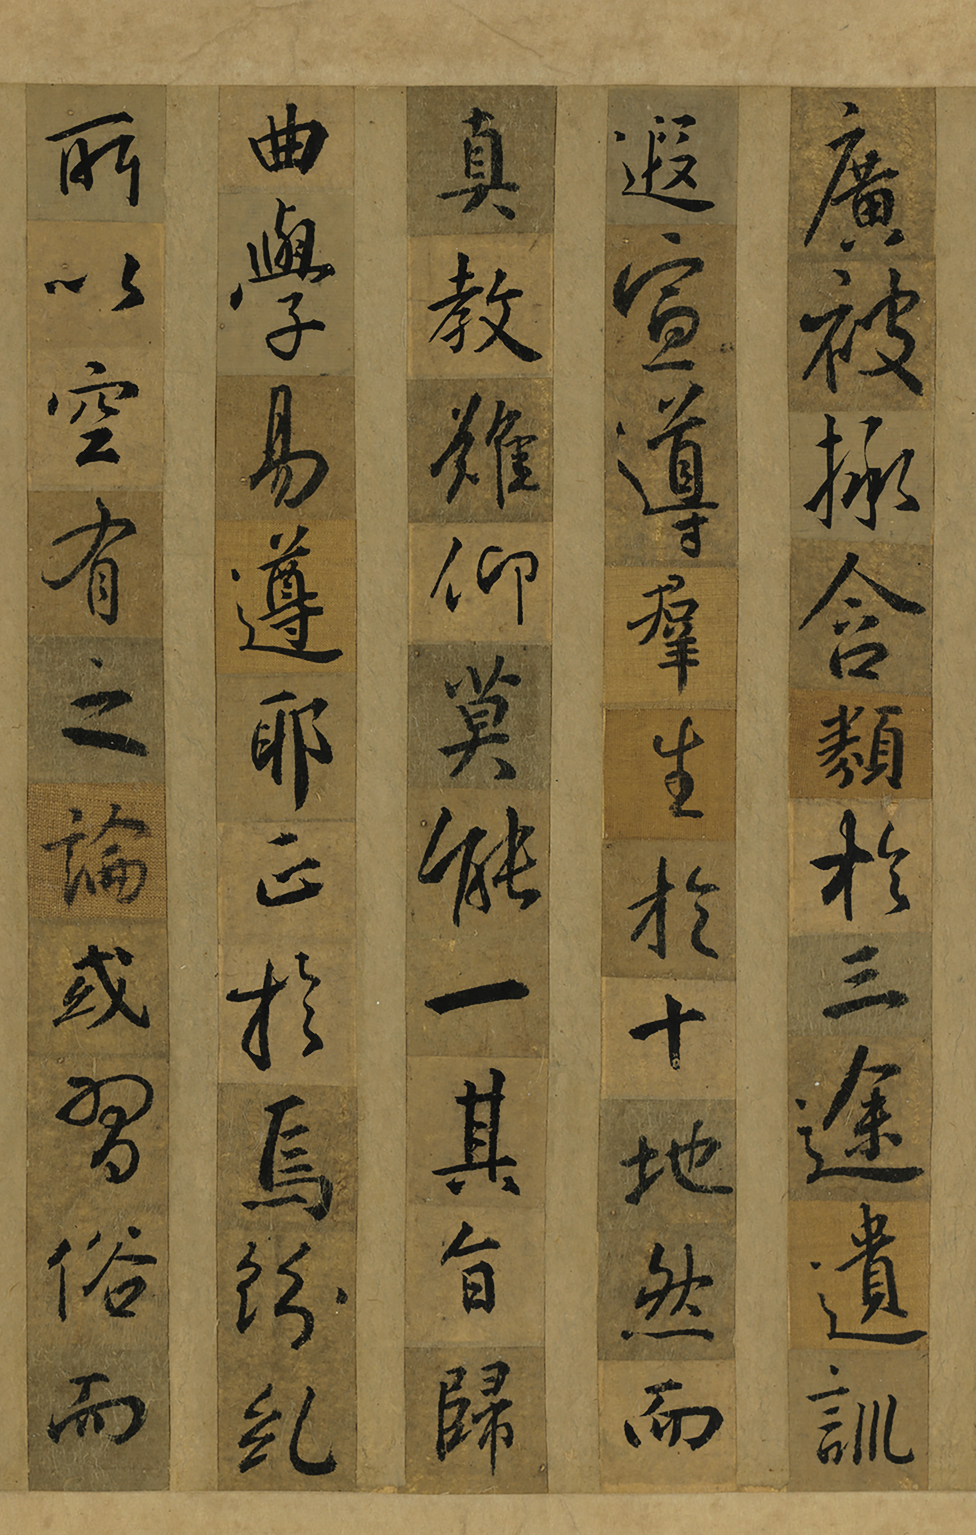 廣被拯含類於三途遺訓
遐宣導羣生於十地然而
真教難仰莫能一其旨歸
曲學易遵耶正於焉紛紏
所以空有之論或習俗而